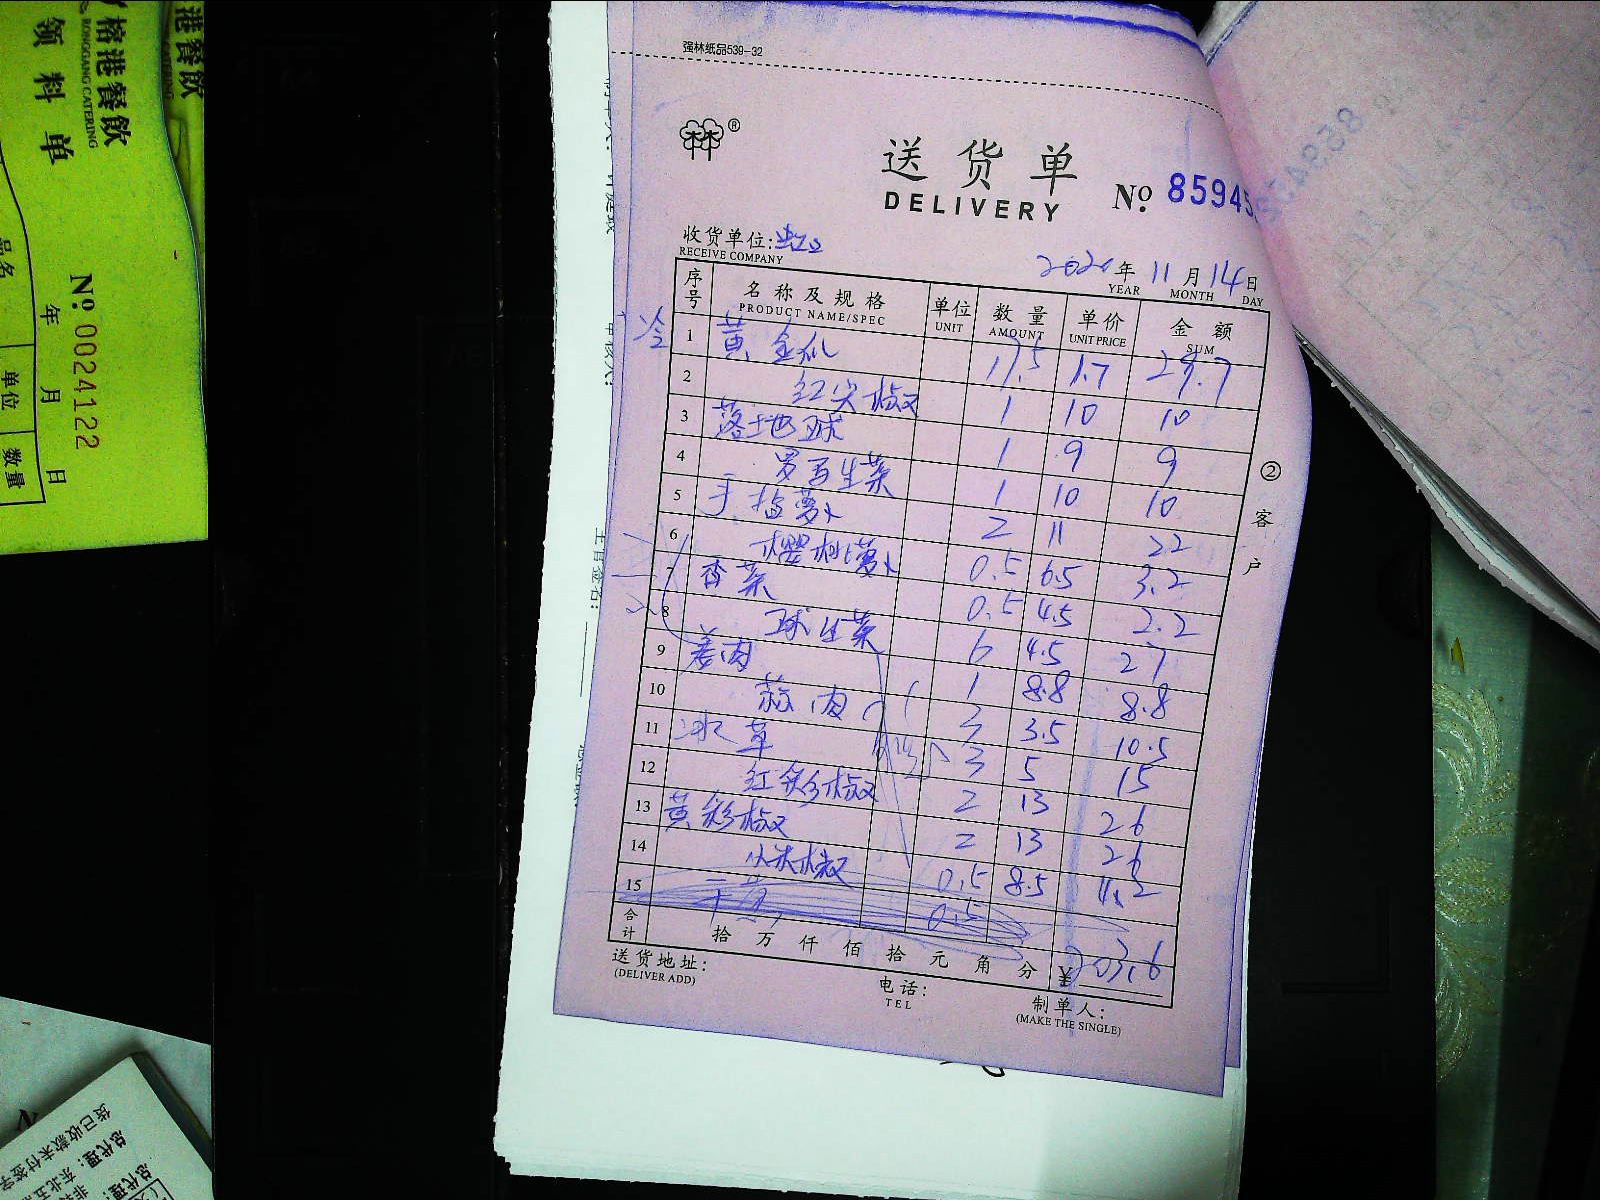 强林纸品539-32
送货单
DELIVERY
№ 85945
收货单位:
RECEIVE COMPANY
2020年 11月 14日
YEAR MONTH DAY
序号 名称及规格 单位 数量 单价 金额
PRODUCT NAME/SPEC UNIT AMOUNT UNIT PRICE SUM
冷
1 黄金瓜 17.5 1.7 29.7
2 红尖椒 1 10 10
3 落地球 1 9 9
4 罗百生菜 1 10 10
5 手指萝卜 2 11 22
6 樱桃萝卜 0.5 6.5 3.2
7 香菜 0.5 4.5 2.2
8 球生菜 6 4.5 27
9 姜肉 1 8.8 8.8
10 蒜肉 3 3.5 10.5
11 冰草 3 5 15
12 红彩椒 2 13 26
13 黄彩椒 2 13 26
14 小米椒 0.5 8.5 4.2
15 0.5
合计 拾 万 仟 佰 拾 元 角 分 ¥ 203.6
送货地址:
(DELIVER ADD)
电话:
TEL
制单人:
(MAKE THE SINGLE)
②客户
榕港餐飲
RONGGANG CATERING
领料单
№ 0024122
年 月 日
品名 单位 数量
港餐飲